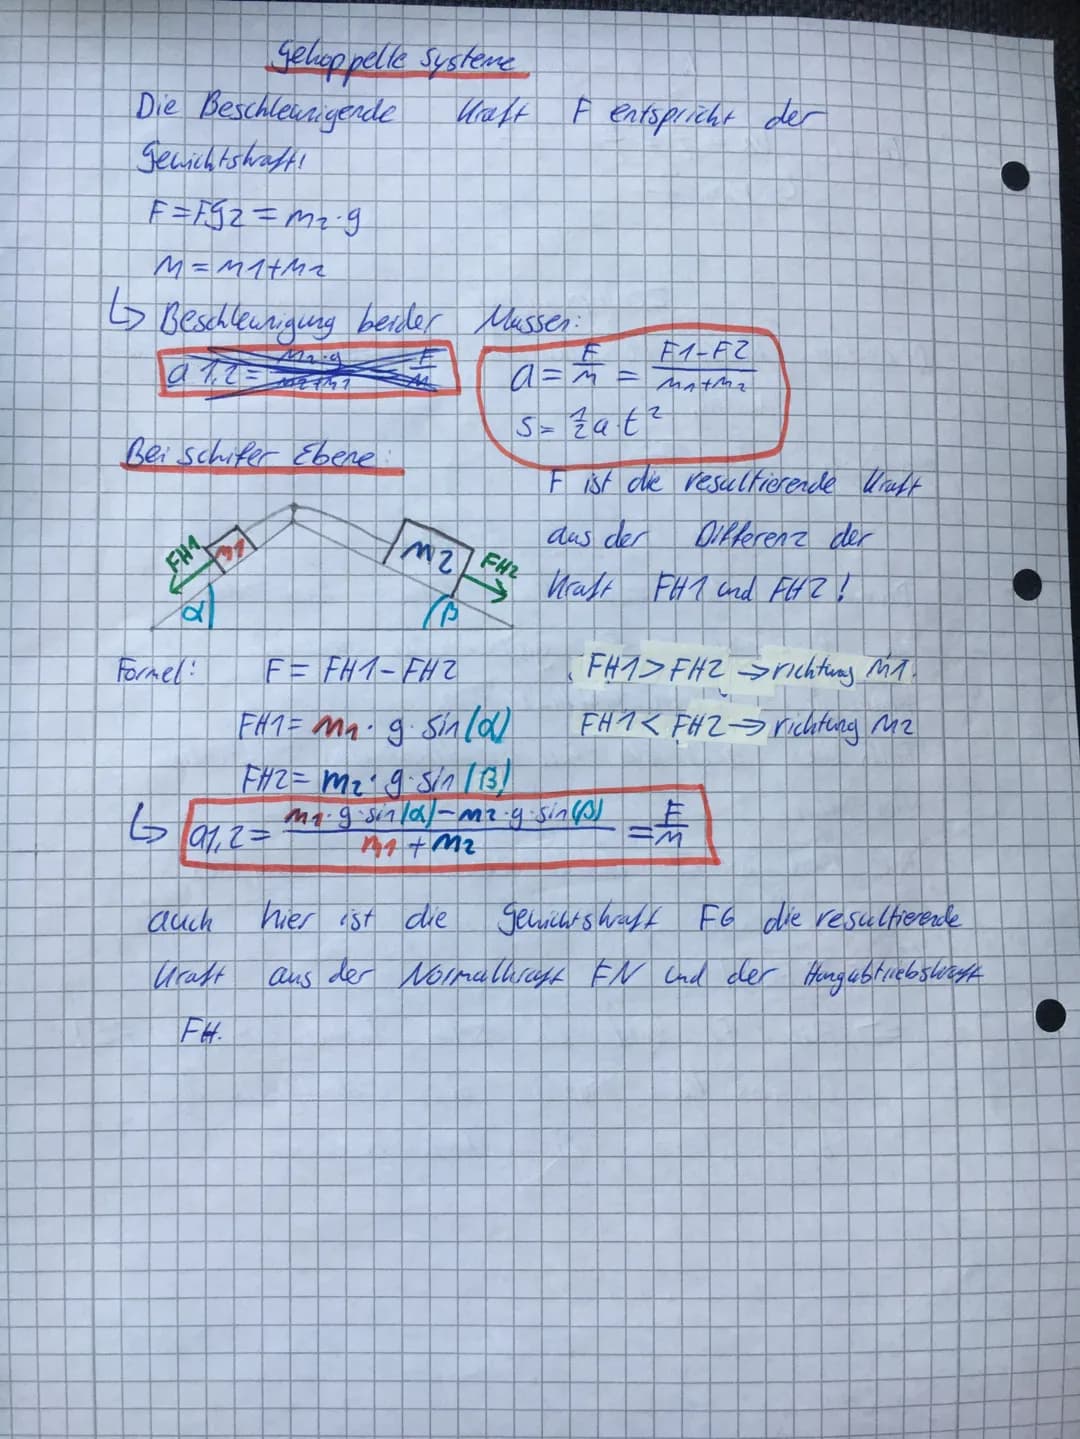 Gekoppelte Systeme
Die Beschleunigende Kraft F entspricht der
Gewichtskraft!
F = FG2 = m2 · g
M = m1 + m2
↳ Beschleunigung beider Massen:
a 1,2 = m2·g / m2+m1 = F/M
a = F/M = F1-F2 / m1+m2
s = 1/2 a · t²
Bei schifer Ebene:
F ist die resultierende Kraft
aus der Differenz der
Kraft FH1 und FH2!
FH1
m1
α
m2
FH2
β
Formel: F = FH1 - FH2
FH1 > FH2 → richtung M1.
FH1 = m1 · g · sin(α)
FH1 < FH2 → richtung M2
FH2 = m2 · g · sin(β)
↳ a1,2 = m1·g·sin(α) - m2·g·sin(β) / m1 + m2 = F/M
auch hier ist die Gewichtskraft FG die resultierende
Kraft aus der Normalkraft FN und der Hangabtriebskraft
FH.